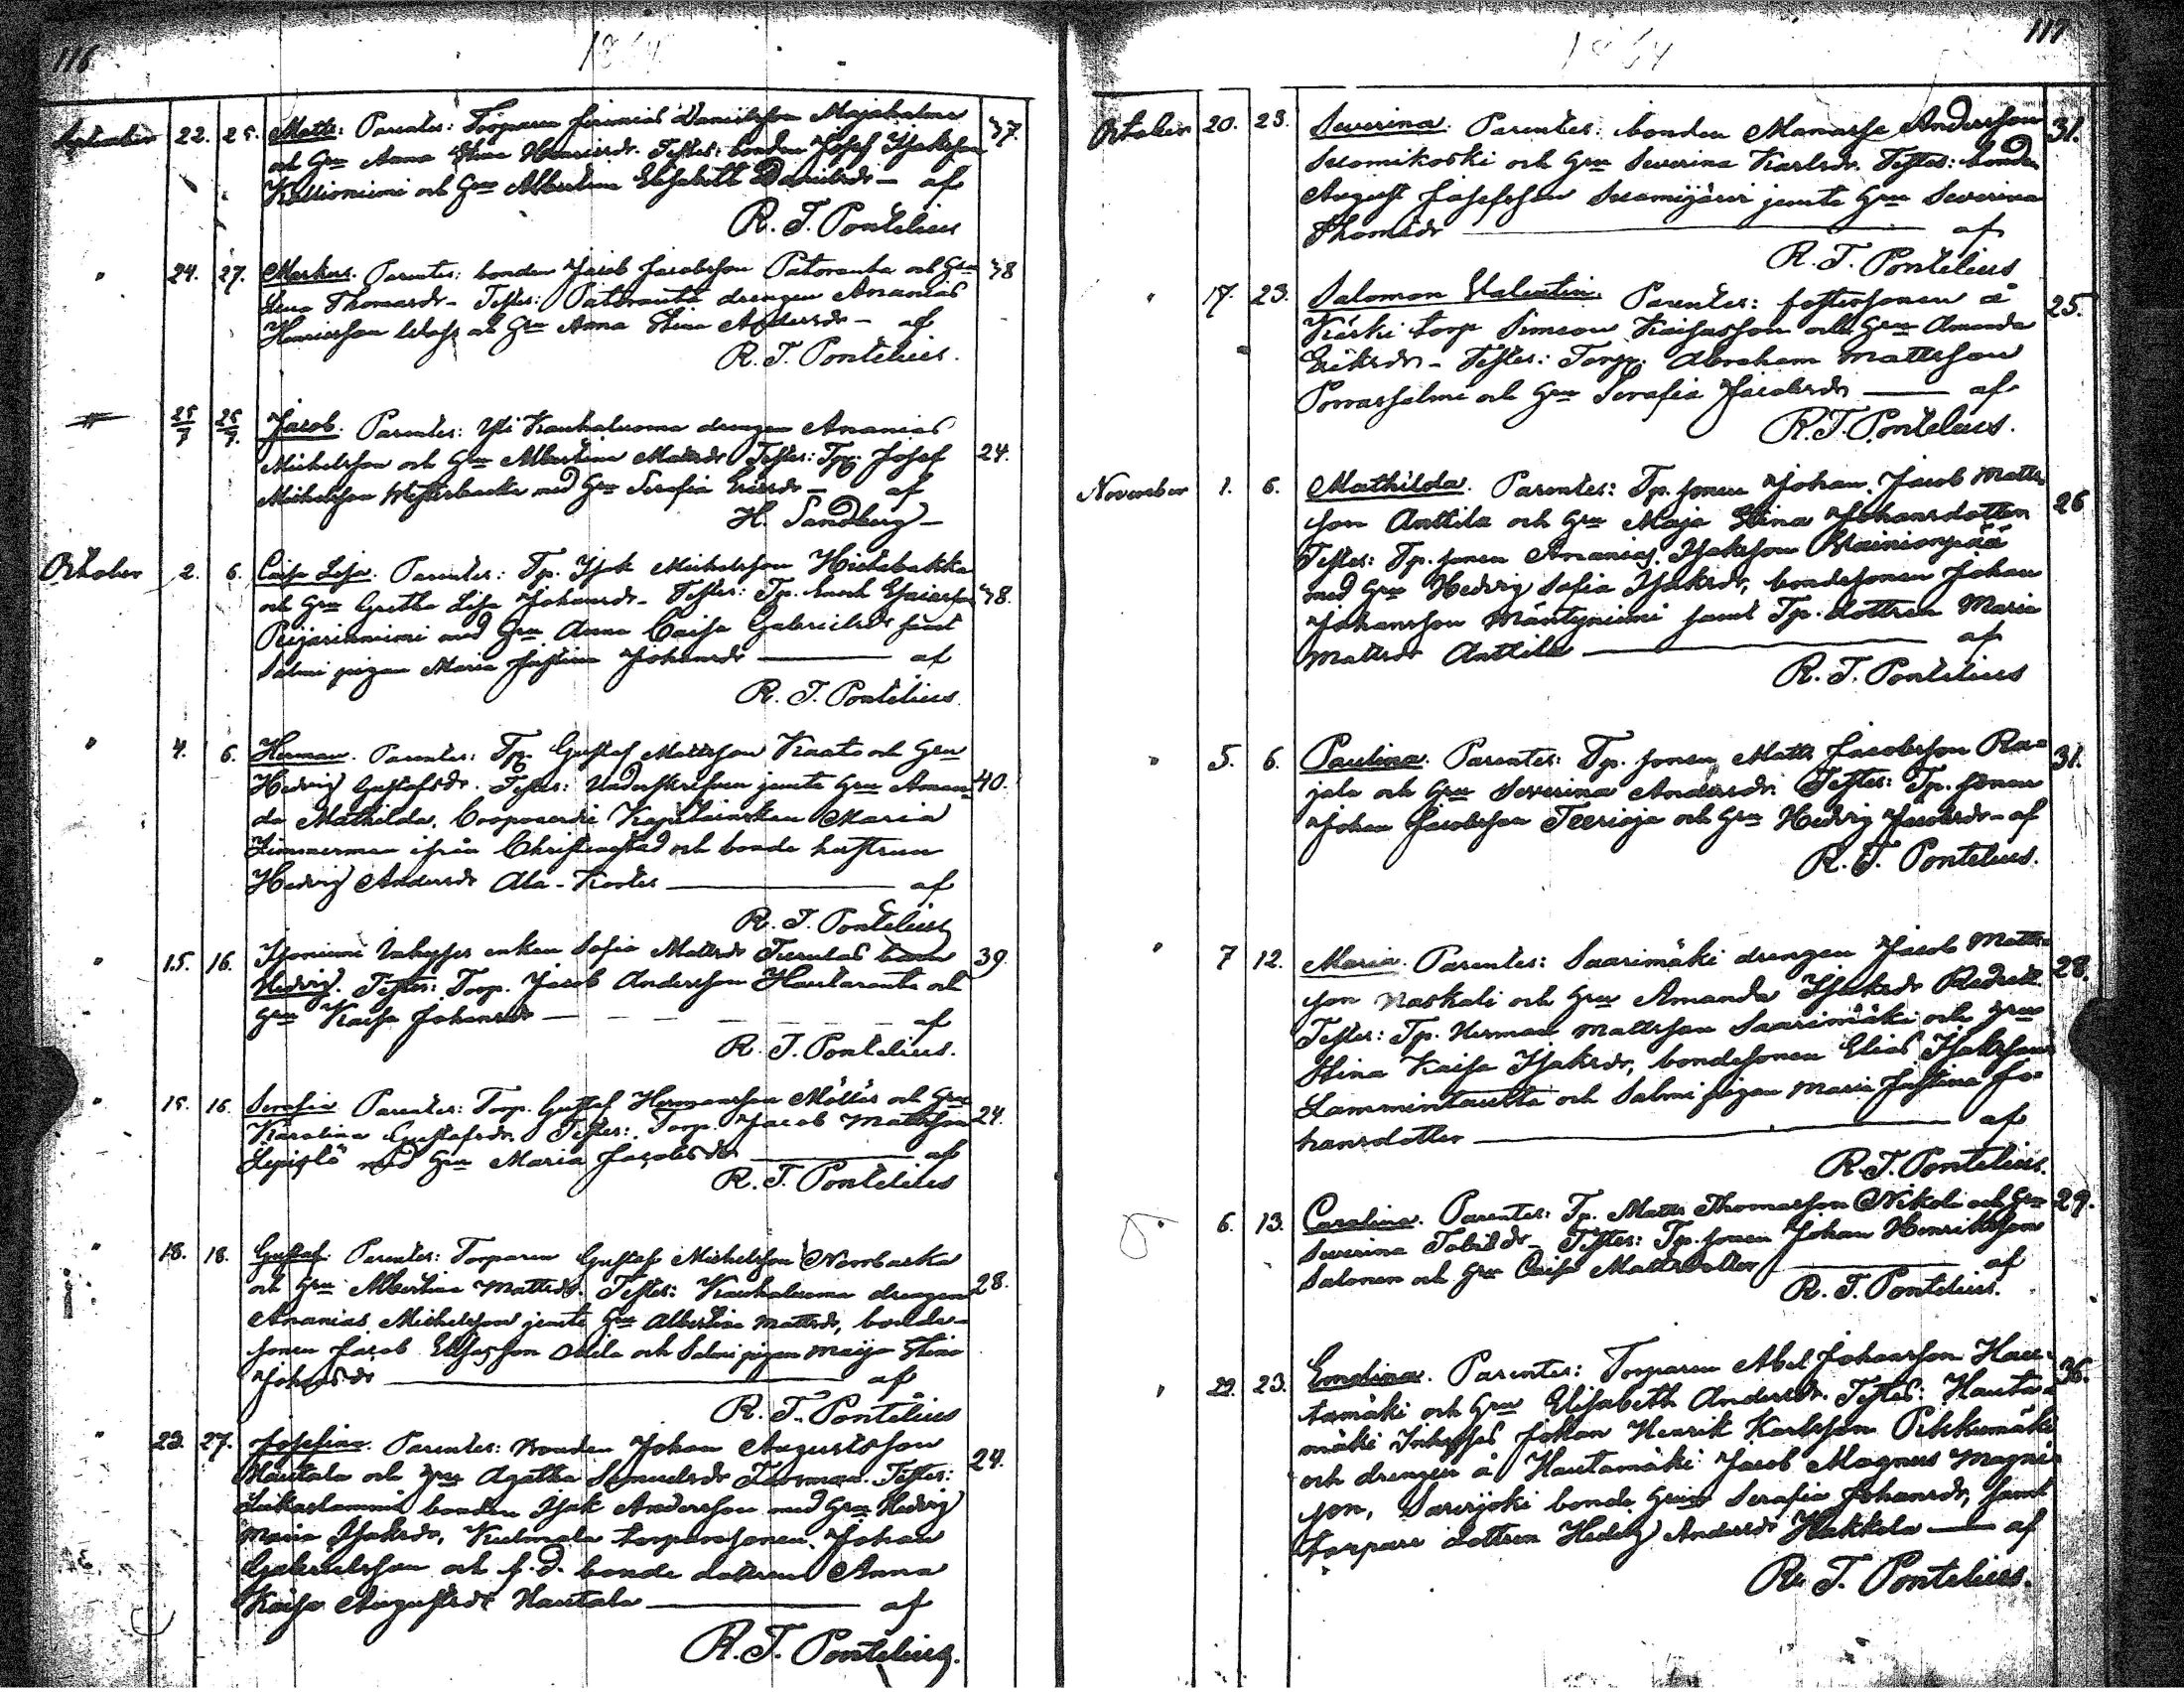 116
1864
September 22. 25. Matts: Parentes: Torparen Jeremias Danielsson Majakalma 37.
och Gru Anna Stina Henricsdr. Testes: bonden Josef Isaksson
Kallioniemi och Gru Albertina Elisabeth Danielsdr — af
R. T. Pontelius
" 24. 27. Markus. Parentes: bonden Jacob Jacobsson Patoranta och Gru 38
Lena Thomasdr — Testes: Patoranta drengen Ananias
Henricsson och Gru Anna Stina Andersdr — af
R. T. Pontelius.
25/9 25/9. Jacob. Parentes: Yli Kauhaluoma drengen Ananias
Michelsson och Gru Albertina Mattsdr Testes: Tp. Josef 24.
Michelsson Westerbacka med Gru Serafia Ericsdr — af
H. Sandberg —
Oktober 2. 6. Caisa Lisa. Parentes: Tp. Isak Michelsson Hietabakka
och Gru Gretha Lisa Johansdr — Testes: Tp. Enoch Esaiasson 38.
med Gru Anna Caisa Gabrielsdr samt
Salmi pigan Maria Justina Johansdr — af
R. T. Pontelius.
" 4. 6. Herman. Parentes: Tp. Gustaf Mattsson Kaato och Gru
Hedvig Gustafsdr. Testes: Undertecknad jemte Gru Aman= 40.
da Mathilda, Coopvaerdie Kapitainskan Maria
Zimmerman ifrån Christinestad och bonde hustrun
Hedvig Andersdr Ala-Kortes — af
R. T. Pontelius
" 15. 16. Isoniemi Inhyses enkan Sofia Mattsdr barn 39
Hedvig. Testes: Torp. Jacob Andersson Hautaranta och
Gru Kaisa Johansdr — af
R. T. Pontelius.
" 15. 16. Serafia Parentes: Torp. Gustaf Hermansson Möttös och Gru
Karolina Gustafsdr. Testes: Torp. Jacob Mattsson 24.
Lepistö med Gru Maria Jacobsdr — af
R. T. Pontelius
" 18. 18. Gustaf. Parentes: Torparen Gustaf Michelsson
och Gru Albertina Mattsdr. Testes: Kauhaluoma drengen 28.
Ananias Michelsson jemte Gru Albertina Mattsdr, bonde-
sonen Jacob Eliasson och Salmi pigan Maija Stina
Johansdr — af
R. T. Pontelius
" 23. 27. Josefina. Parentes: Bonden Johan Augustsson
Hautala och Gru Agatha Samuelsdr. Testes: 24.
Liikaslammi bonden Isak Andersson med Gru Hedvig
Maria Isaksdr, Kulmala torparesonen Johan
Gabrielsson och f. d. bonde dottren Anna
Kaisa Augustsdr Hautala — af
R. T. Pontelius.
117
1864
Oktober 20. 23. Severina. Parentes: bonden Manasse Andersson 31.
Suomikoski och Gru Severina Karlsdr. Testes: bonden
August Josefsson jemte Gru Severina
Thomasdr — af
R. T. Pontelius
" 17. 23. Salomon Valentin. Parentes: fostersonen å 25.
Kärki torp Simeon Kaisasson och Gru Amanda
Eriksdr — Testes: Torp. Abraham Mattsson
Porrassalmi och Gru Serafia Jacobsdr — af
R. T. Pontelius.
November 1. 6. Mathilda. Parentes: Tp. sonen Johan Jacob Matts= 26
son Anttila och Gru Maja Stina Johansdotter
Testes: Tp. sonen Ananias Isaksson Wainionpää
med Gru Hedvig Sofia Isaksdr, bondesonen Johan
Johansson Mäntyniemi samt Tp. dottren Maria
Mattsdr Anttila — af
R. T. Pontelius
" 5. 6. Paulina. Parentes: Tp. sonen Matts Jacobsson Ra= 31.
jala och Gru Severina Andersdr. Testes: Tp. sonen
Johan Jacobsson Teerioja och Gru Hedvig Jacobsdr — af
R. T. Pontelius.
" 7 12. Maria. Parentes: Saarimäki drengen Jacob Matts= 28.
son Naskali och Gru Amanda Isaksdr
Testes: Tp. Herman Mattsson Saarimäki och Gru
Stina Kaisa Isaksdr, bondesonen Elias Isaksson
Lammintausta och Salmi pigan Maria Justina Jo=
hansdotter — af
R. T. Pontelius.
6. 13. Carolina. Parentes: Tp. Matts Thomasson Nikola och Gru 29.
Severina Tobiasdr — Testes: Tp. sonen Johan Henriksson
Salonen och Gru Caisa Mattsdotter — af
R. T. Pontelius.
" 22. 23. Emelina. Parentes: Torparen Abel Johansson Hau= 36.
tamäki och Gru Elisabeth Andersdr. Testes: Hauta=
mäki Inhyses Johan Henrik Karlsson Pihkamäki
och drengen å Hautamäki Jacob Magnus Magni=
son, bonde Gru Serafia Johansdr, samt
torpare dottren Hedvig Andersdr Hakkola — af
R. T. Pontelius.